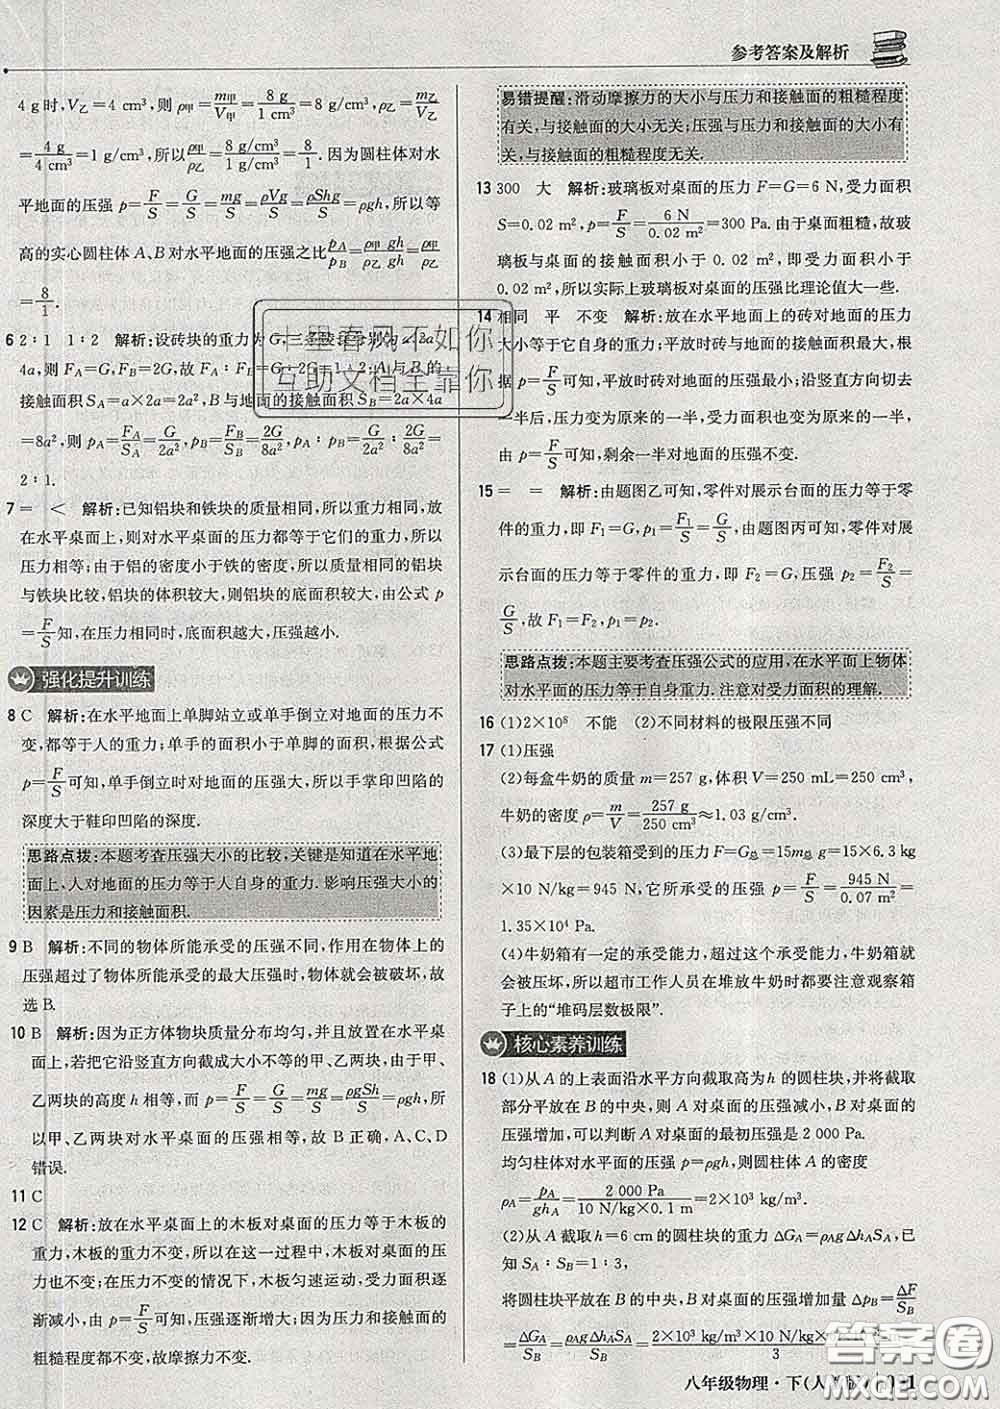 参考答案及解析
4 g时, V乙=4 cm³, 则 ρ甲=m甲/V甲=8 g/1 cm³=8 g/cm³, ρ乙=m乙/V乙
=4 g/4 cm³=1 g/cm³, 所以ρ甲/ρ乙=8 g/cm³/1 g/cm³=8/1. 因为圆柱体对水
平地面的压强 p=F/S=G/S=mg/S=ρVg/S=ρShg/S=ρgh, 所以等
高的实心圆柱体 A、B 对水平地面的压强之比pA/pB=ρ甲gh/ρ乙gh=ρ甲/ρ乙
=8/1.
6 2∶1 1∶2 解析:设砖块的重力为G,三条棱长分别为a、2a、
4a, 则 FA=G, FB=2G, 故 FA∶FB=G∶2G=1∶2; A 与 B 的
接触面积 SA=a×2a=2a², B 与地面的接触面积 SB=2a×4a
=8a², 则 pA=FA/SA=G/2a², pB=FB/SB=2G/8a², pA∶pB=G/2a²∶2G/8a²=
2∶1.
7 = < 解析:已知铝块和铁块的质量相同,所以重力相同,放
在水平桌面上,则对水平桌面的压力都等于它们的重力,所以
压力相等;由于铝的密度小于铁的密度,所以质量相同的铝块
与铁块比较,铝块的体积较大,则铝块的底面积较大,由公式 p
=F/S知,在压力相同时,底面积越大,压强越小.
强化提升训练
8 C 解析:在水平地面上单脚站立或单手倒立对地面的压力不
变,都等于人的重力;单手的面积小于单脚的面积,根据公式
p=F/S可知,单手倒立时对地面的压强大,所以手掌印凹陷的
深度大于鞋印凹陷的深度.
思路点拨:本题考查压强大小的比较,关键是知道在水平地
面上,人对地面的压力等于人自身的重力. 影响压强大小的
因素是压力和接触面积.
9 B 解析:不同的物体所能承受的压强不同,作用在物体上的
压强超过了物体所能承受的最大压强时,物体就会被破坏,故
选 B.
10 B 解析:因为正方体物块质量分布均匀,并且放置在水平桌
面上,若把它沿竖直方向截成大小不等的甲、乙两块,由于甲、
乙两块的高度 h 相等,而 p=F/S=G/S=mg/S=ρgSh/S=ρgh,所
以甲、乙两块对水平桌面的压强相等,故 B 正确, A、C、D
错误.
11 C
12 C 解析:放在水平桌面上的木板对桌面的压力等于木板的
重力,木板的重力不变,所以在这一过程中,木板对桌面的压
力也不变;在压力不变的情况下,木板匀速运动,受力面积逐
渐减小,由 p=F/S可知,压强逐渐增大;由于压力和接触面的
粗糙程度都不变,故摩擦力不变.
易错提醒:滑动摩擦力的大小与压力和接触面的粗糙程度
有关,与接触面的大小无关;压强与压力和接触面的大小有
关,与接触面的粗糙程度无关.
13 300 大 解析:玻璃板对桌面的压力 F=G=6 N,受力面积
S=0.02 m², p=F/S=6 N/0.02 m²=300 Pa. 由于桌面粗糙,故玻
璃板与桌面的接触面积小于 0.02 m², 即受力面积小于
0.02 m²,所以实际上玻璃板对桌面的压强比理论值大一些.
14 相同 平 不变 解析:放在水平地面上的砖对地面的压力
等于它自身的重力;平放时砖与地面的接触面积最大,根
据 p=F/S可知,平放时砖对地面的压强最小;沿竖直方向切去
一半后,压力变为原来的一半,受力面积也变为原来的一半,
由 p=F/S可知,剩余一半对地面的压强不变.
15 = = 解析:由题图乙可知,零件对展示台面的压力等于零
件的重力,即 F₁=G, p₁=F₁/S=G/S, 由题图丙可知,零件对展
示台面的压力等于零件的重力,即 F₂=G,压强 p₂=F₂/S=
G/S,故 F₁=F₂, p₁=p₂.
思路点拨:本题主要考查压强公式的应用,在水平面上物体
对水平面的压力等于自身重力. 注意对受力面积的理解.
16 (1)2×10⁸ 不能 (2)不同材料的极限压强不同
17 (1)压强
(2)每盒牛奶的质量 m=257 g,体积 V=250 mL=250 cm³,
牛奶的密度 ρ=m/V=257 g/250 cm³≈1.03 g/cm³.
(3)最下层的包装箱受到的压力 F=G总=15m总g=15×6.3 kg
×10 N/kg=945 N,它所承受的压强 p=F/S=945 N/0.07 m²=
1.35×10⁴ Pa.
(4)牛奶箱有一定的承受能力,超过这个承受能力,牛奶箱会
被压坏,所以超市工作人员在堆放牛奶时都要注意观察箱
子上的“堆码层数极限”.
核心素养训练
18 (1)从 A 的上表面沿水平方向截取高为 h 的圆柱块,并将截取
部分平放在 B 的中央,则 A 对桌面的压强减小, B 对桌面的
压强增加,可以判断 A 对桌面的最初压强是 2 000 Pa.
均匀柱体对水平面的压强 p=ρgh,则圆柱体 A 的密度
ρA=pA/ghA=2 000 Pa/10 N/kg×0.1 m=2×10³ kg/m³.
(2)从 A 截取 h=6 cm 的圆柱块的重力 ΔGA=ρAgΔhASA,
SA∶SB=1∶3,
将圆柱块平放在 B 的中央, B 对桌面的压强增加量 ΔpB=ΔF/SB
=ΔGA/SB=ρAgΔhASA/SB=2×10³ kg/m³×10 N/kg×
八年级物理·下(人教版)
十里春风不如你
互助文档全靠你
答案圈